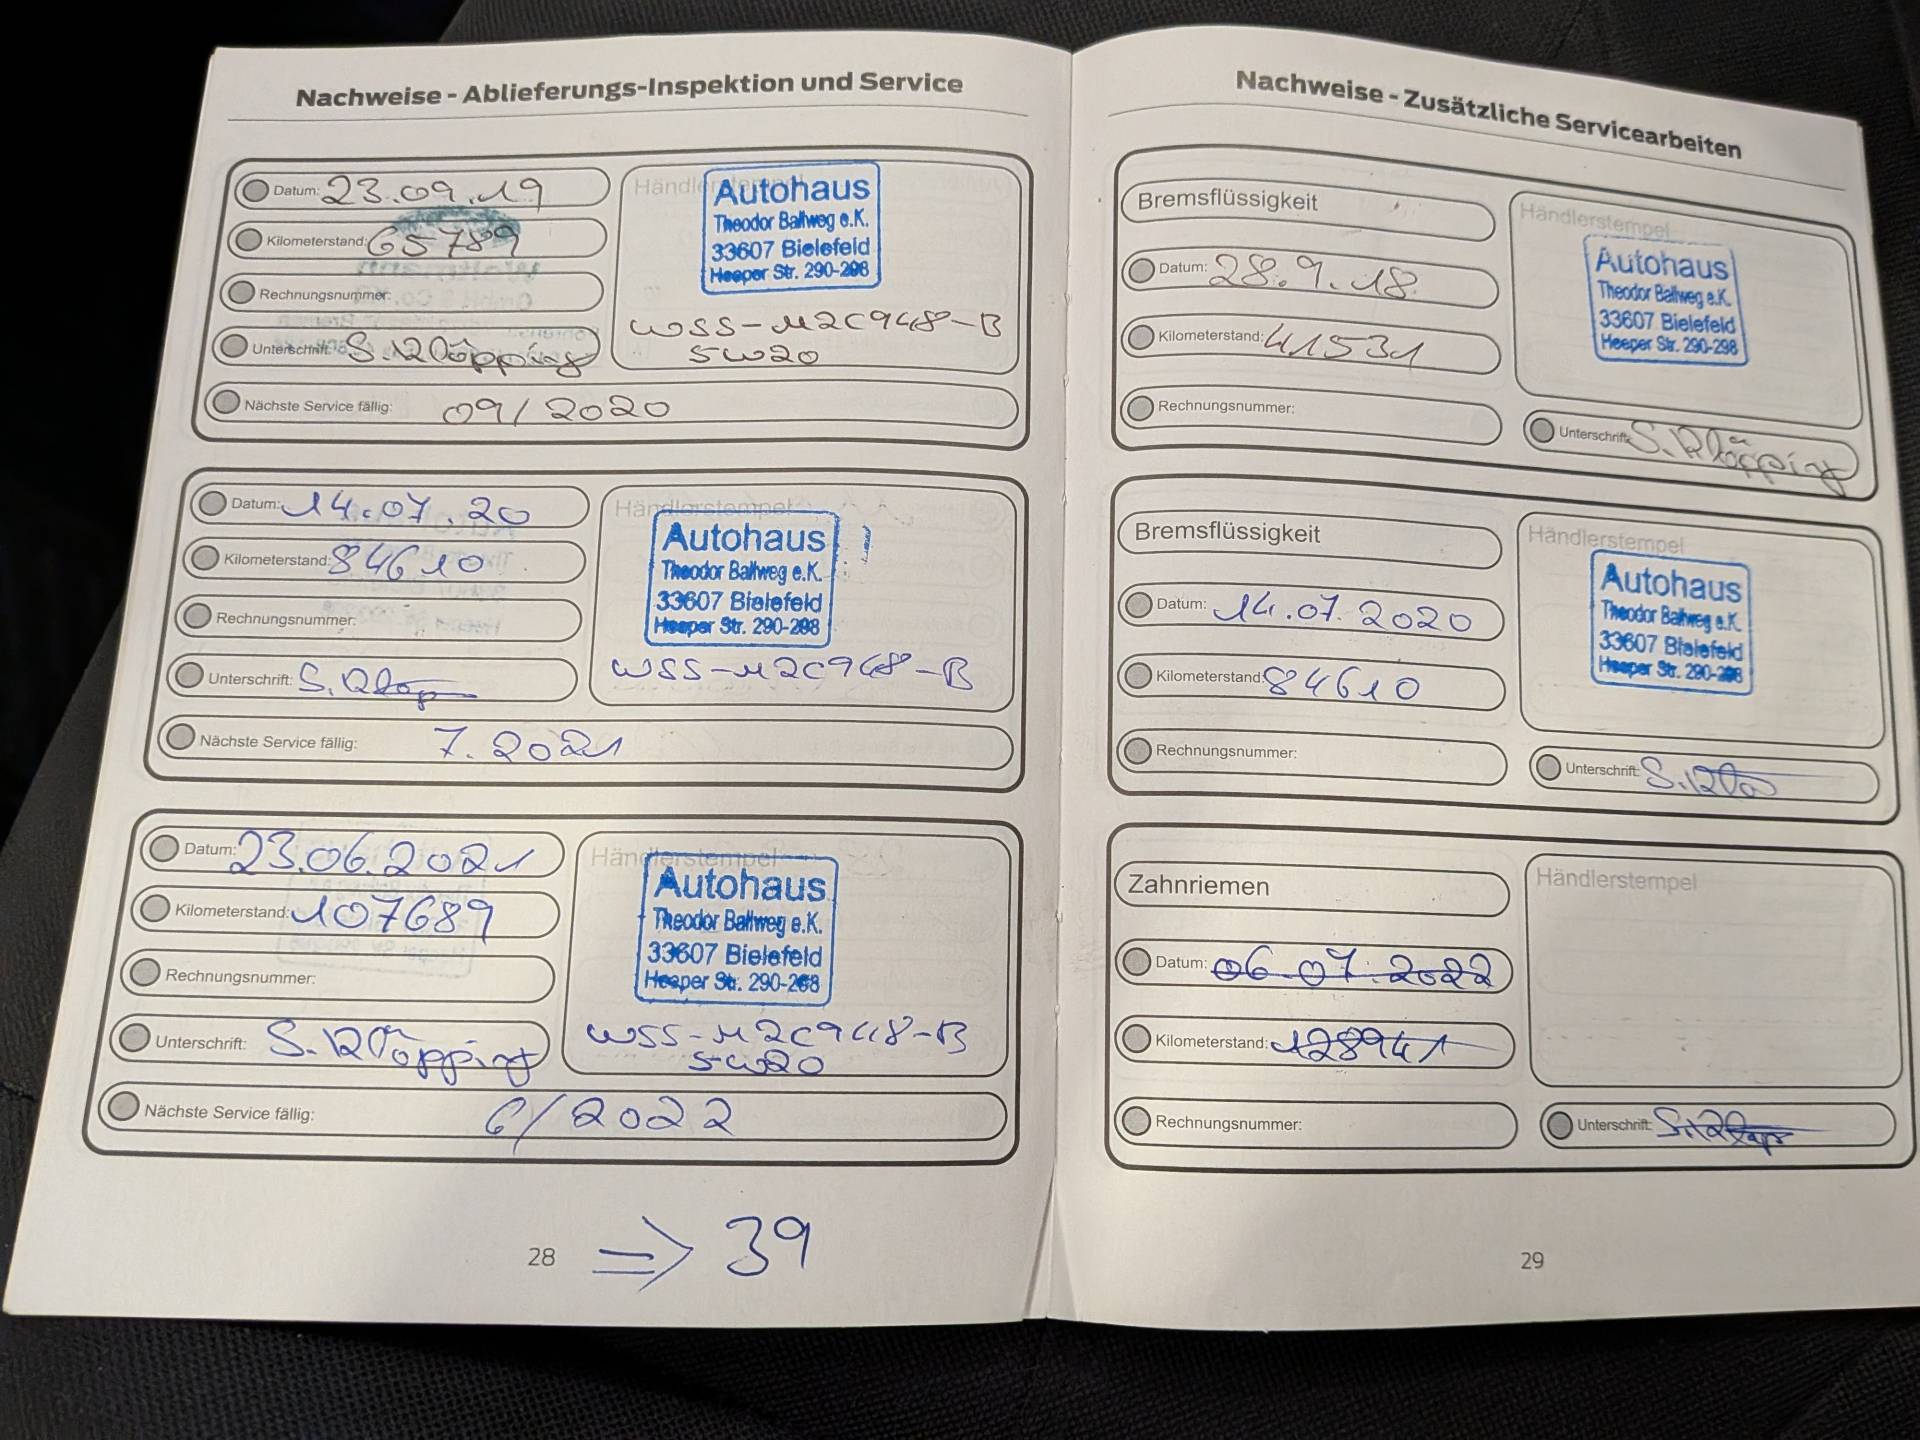 Nachweise - Ablieferungs-Inspektion und Service
Datum: 23.09.19
Kilometerstand: 65789
Rechnungsnummer:
Unterschrift: S. Klöpping
Nächste Service fällig: 09/2020
Händlerstempel
Autohaus
Theodor Ballweg e.K.
33607 Bielefeld
Heeper Str. 290-298
WSS-M2C948-B
5W20
Datum: 14.07.20
Kilometerstand: 84610
Rechnungsnummer:
Unterschrift: S. Klöpp
Nächste Service fällig: 7.2021
Händlerstempel
Autohaus
Theodor Ballweg e.K.
33607 Bielefeld
Heeper Str. 290-298
WSS-M2C948-B
Datum: 23.06.2021
Kilometerstand: 107689
Rechnungsnummer:
Unterschrift: S. Klöpping
Nächste Service fällig: 6/2022
Händlerstempel
Autohaus
Theodor Ballweg e.K.
33607 Bielefeld
Heeper Str. 290-298
WSS-M2C948-B
5W20
28 => 39
Nachweise - Zusätzliche Servicearbeiten
Bremsflüssigkeit
Datum: 28.9.18
Kilometerstand: 41531
Rechnungsnummer:
Händlerstempel
Autohaus
Theodor Ballweg e.K.
33607 Bielefeld
Heeper Str. 290-298
Unterschrift: S. Klöpping
Bremsflüssigkeit
Datum: 14.07.2020
Kilometerstand: 84610
Rechnungsnummer:
Händlerstempel
Autohaus
Theodor Ballweg e.K.
33607 Bielefeld
Heeper Str. 290-298
Unterschrift: S. Klö
Zahnriemen
Datum: 06.07.2022
Kilometerstand: 128941
Rechnungsnummer:
Händlerstempel
Unterschrift:
29